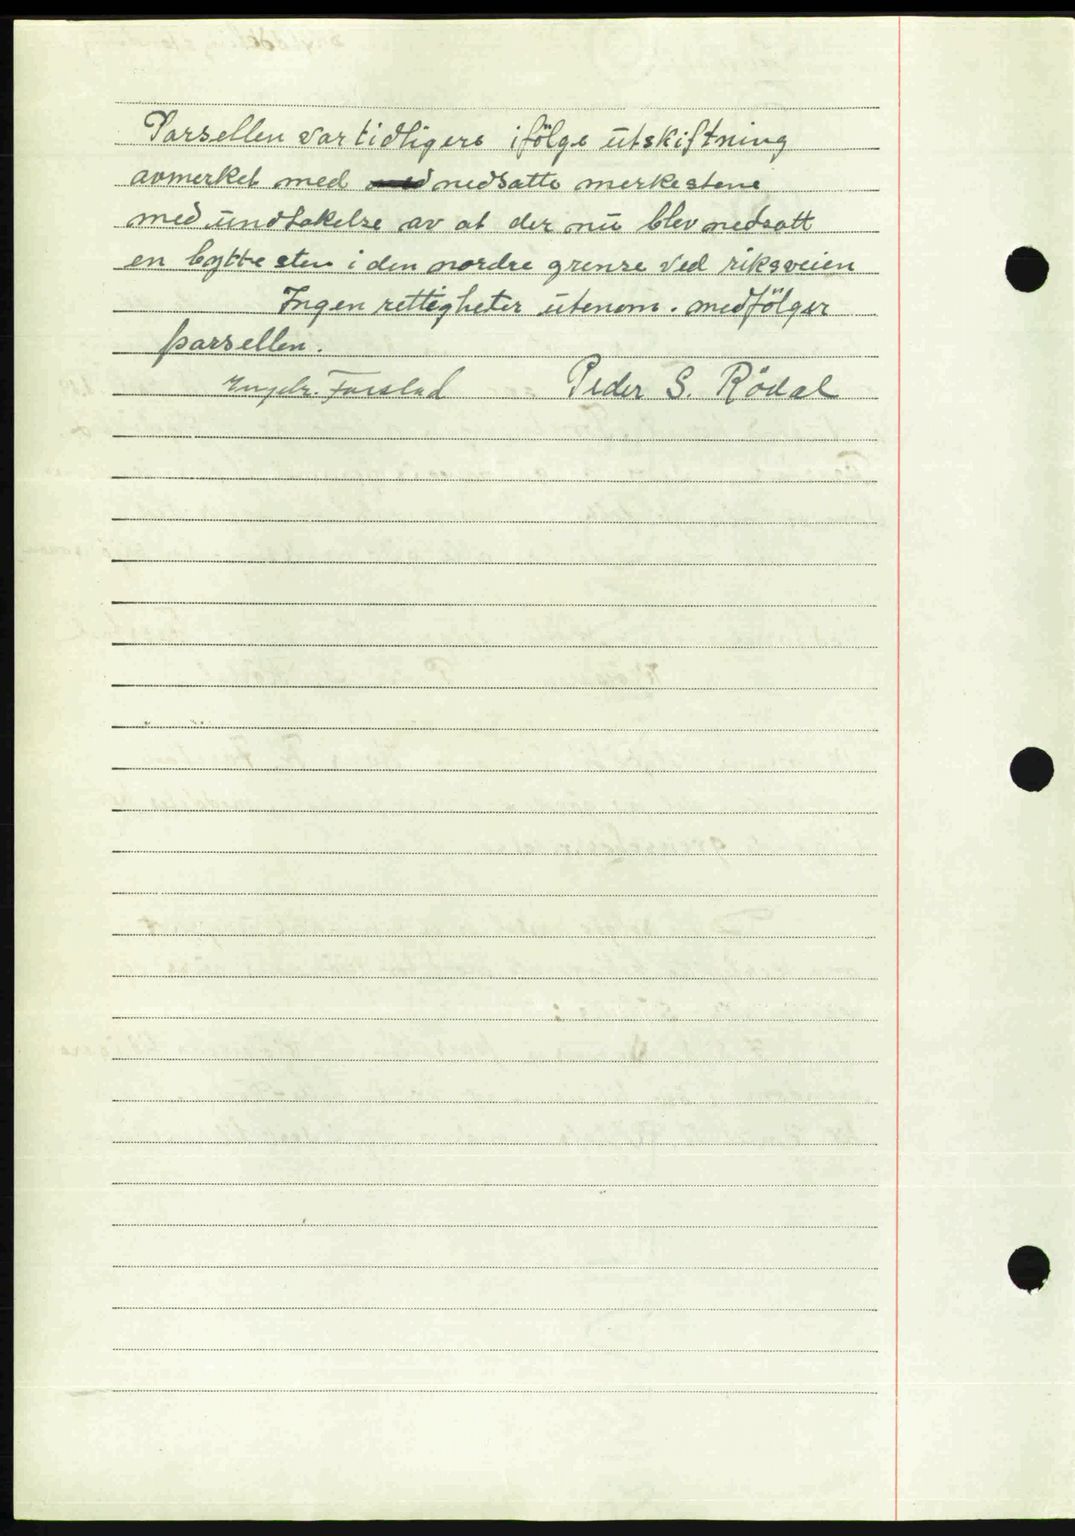 Parsellen var tidligere ifölge utskiftning
avmerket med nedsatte merkestene
med undtakelse av at der nu blev nedsatt
en byttesten i den nordre grense ved riksveien
Ingen rettigheter utenom. medfölger
parsellen.
Farstad Peder S. Rödal